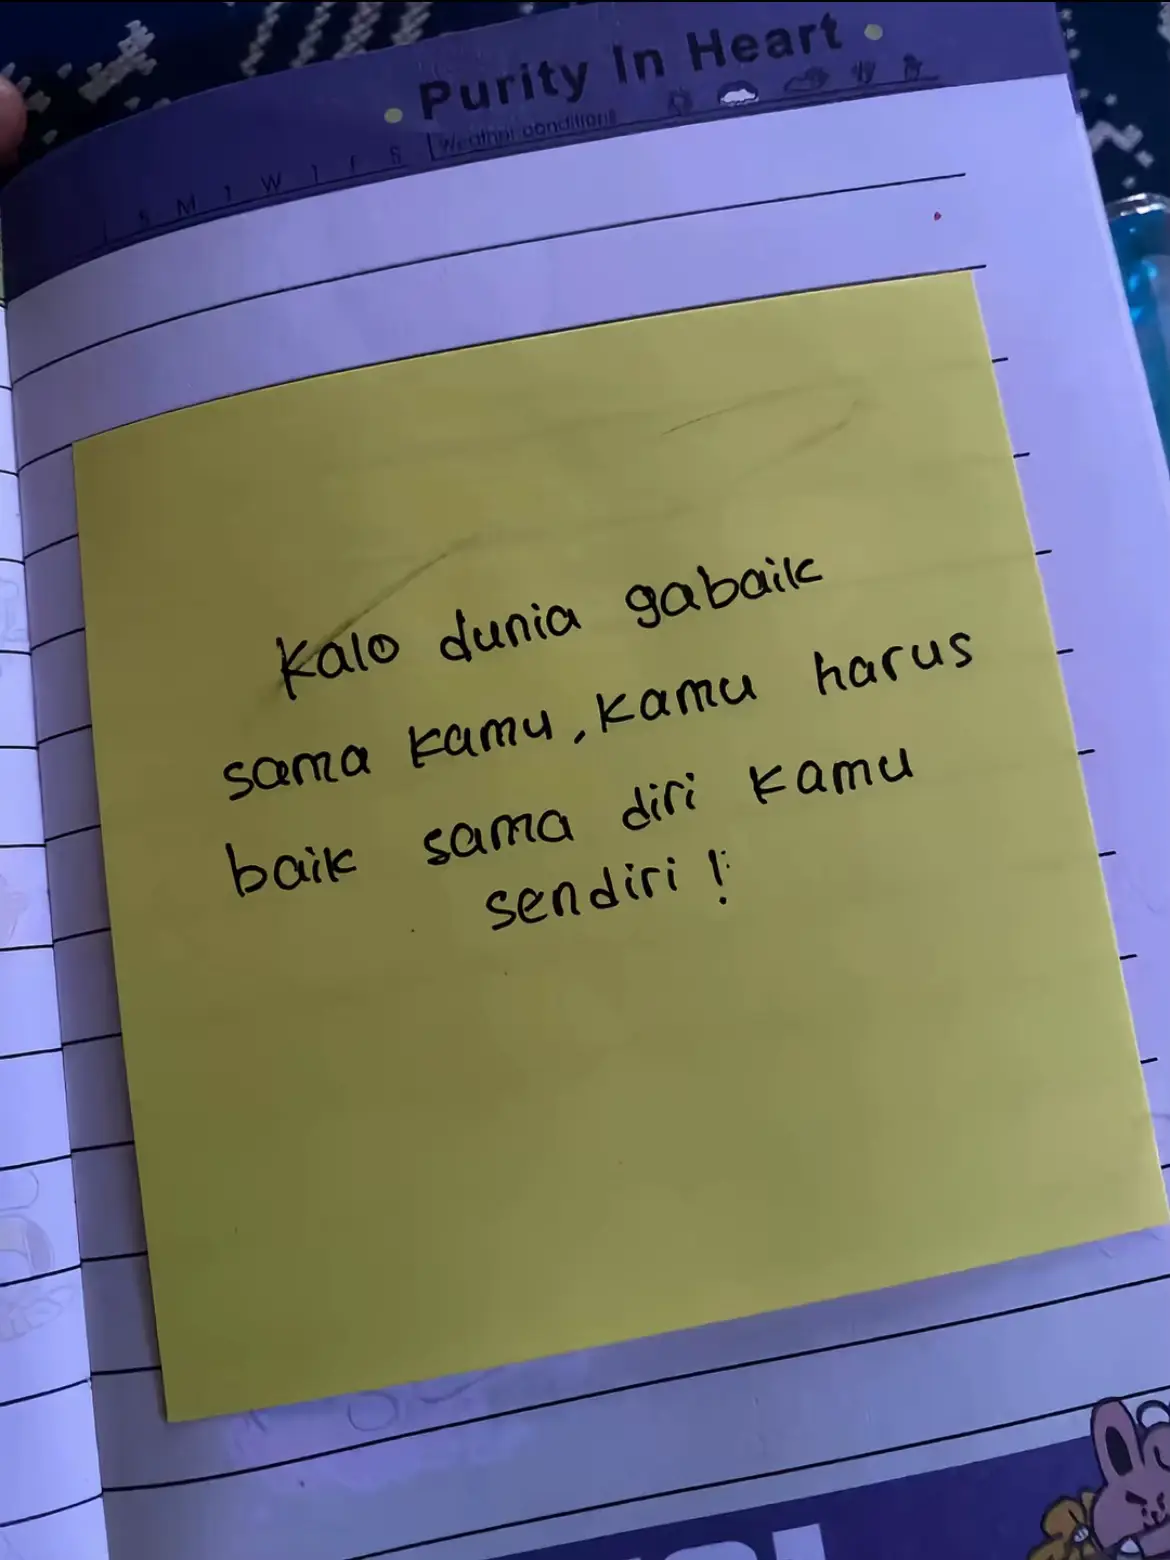 • Purity In Heart •
S M T W T F S Weather conditions
Kalo dunia gabaik
sama kamu, kamu harus
baik sama diri kamu
sendiri !